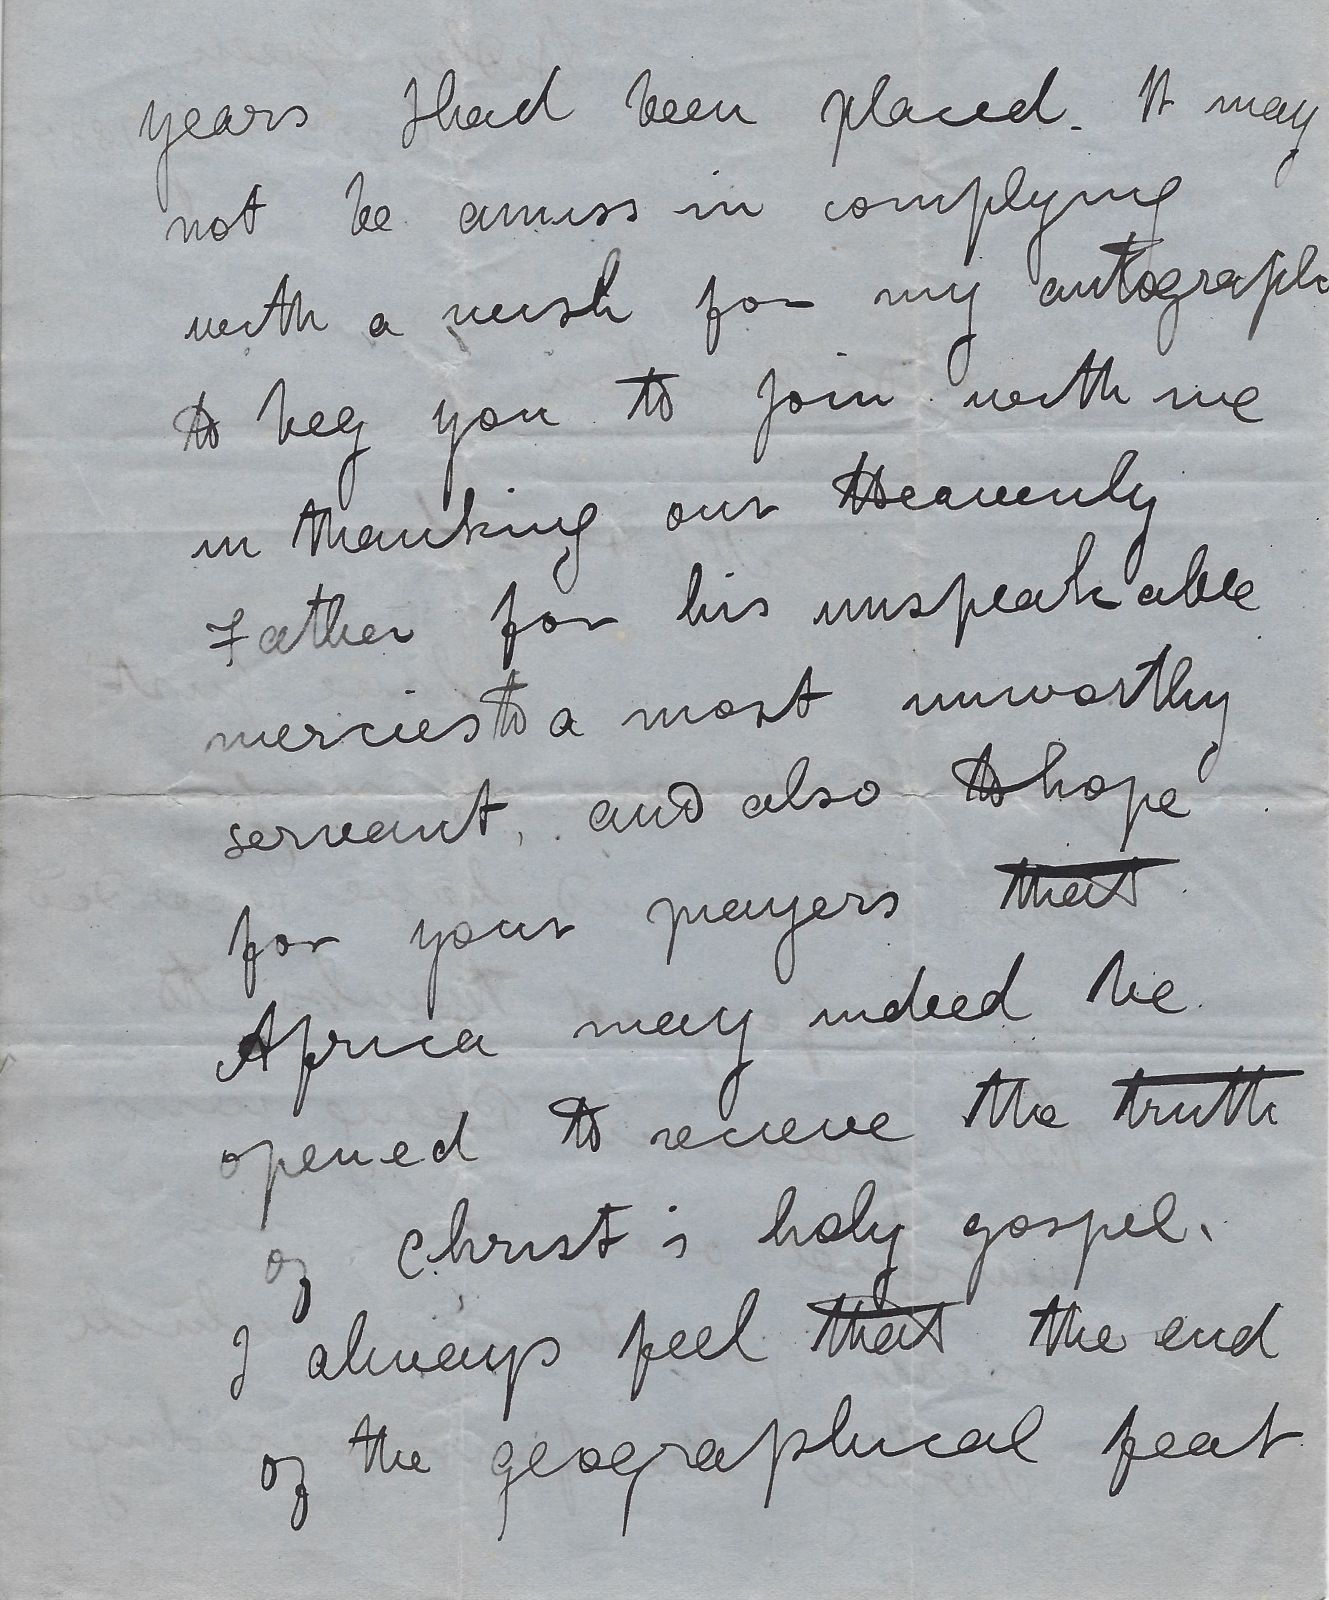 years I had been placed. It may
not be amiss in complying
with a wish for my autograph
to beg you to join with me
in thanking our Heavenly
Father for his unspeakable
mercies to a most unworthy
servant, and also to hope
for your prayers that
Africa may indeed be
opened to receive the truth
of Christ's holy gospel.
I always feel that the end
of the geographical feat